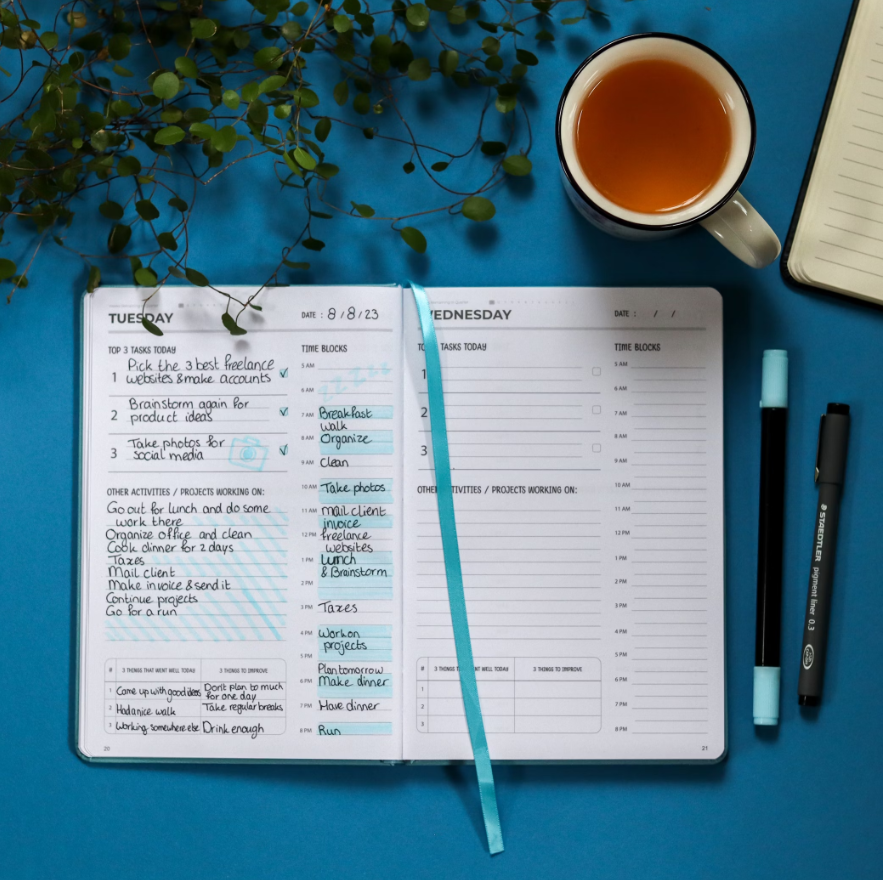 TUESDAY
DATE : 8 / 8 / 23
TOP 3 TASKS TODAY
1 Pick the 3 best freelance
websites & make accounts
2 Brainstorm again for
product ideas
3 Take photos for
social media
OTHER ACTIVITIES / PROJECTS WORKING ON:
Go out for lunch and do some
work there
Organize office and clean
Cook dinner for 2 days
Taxes
Mail client
Make invoice & send it
Continue projects
Go for a run
# 3 THINGS THAT WENT WELL TODAY 3 THINGS TO IMPROVE
1 Came up with good ideas Don't plan to much
for one day
2 Had a nice walk Take regular breaks
3 Working somewhere else Drink enough
20
TIME BLOCKS
5 AM
zzzzz
6 AM
7 AM Breakfast
walk
8 AM Organize
9 AM Clean
10 AM Take photos
11 AM Mail client
invoice
12 PM freelance
websites
1 PM Lunch
& Brainstorm
2 PM
3 PM Taxes
4 PM Work on
projects
5 PM
Plan tomorrow
6 PM Make dinner
7 PM Have dinner
8 PM Run
EDNESDAY
DATE : / /
TASKS TODAY
1
2
3
OTHE TIVITIES / PROJECTS WORKING ON:
# 3 THINGS T WENT WELL TODAY 3 THINGS TO IMPROVE
1
2
3
TIME BLOCKS
5 AM
6 AM
7 AM
8 AM
9 AM
10 AM
11 AM
12 PM
1 PM
2 PM
3 PM
4 PM
5 PM
6 PM
7 PM
8 PM
21
STAEDTLER pigment liner 0.3